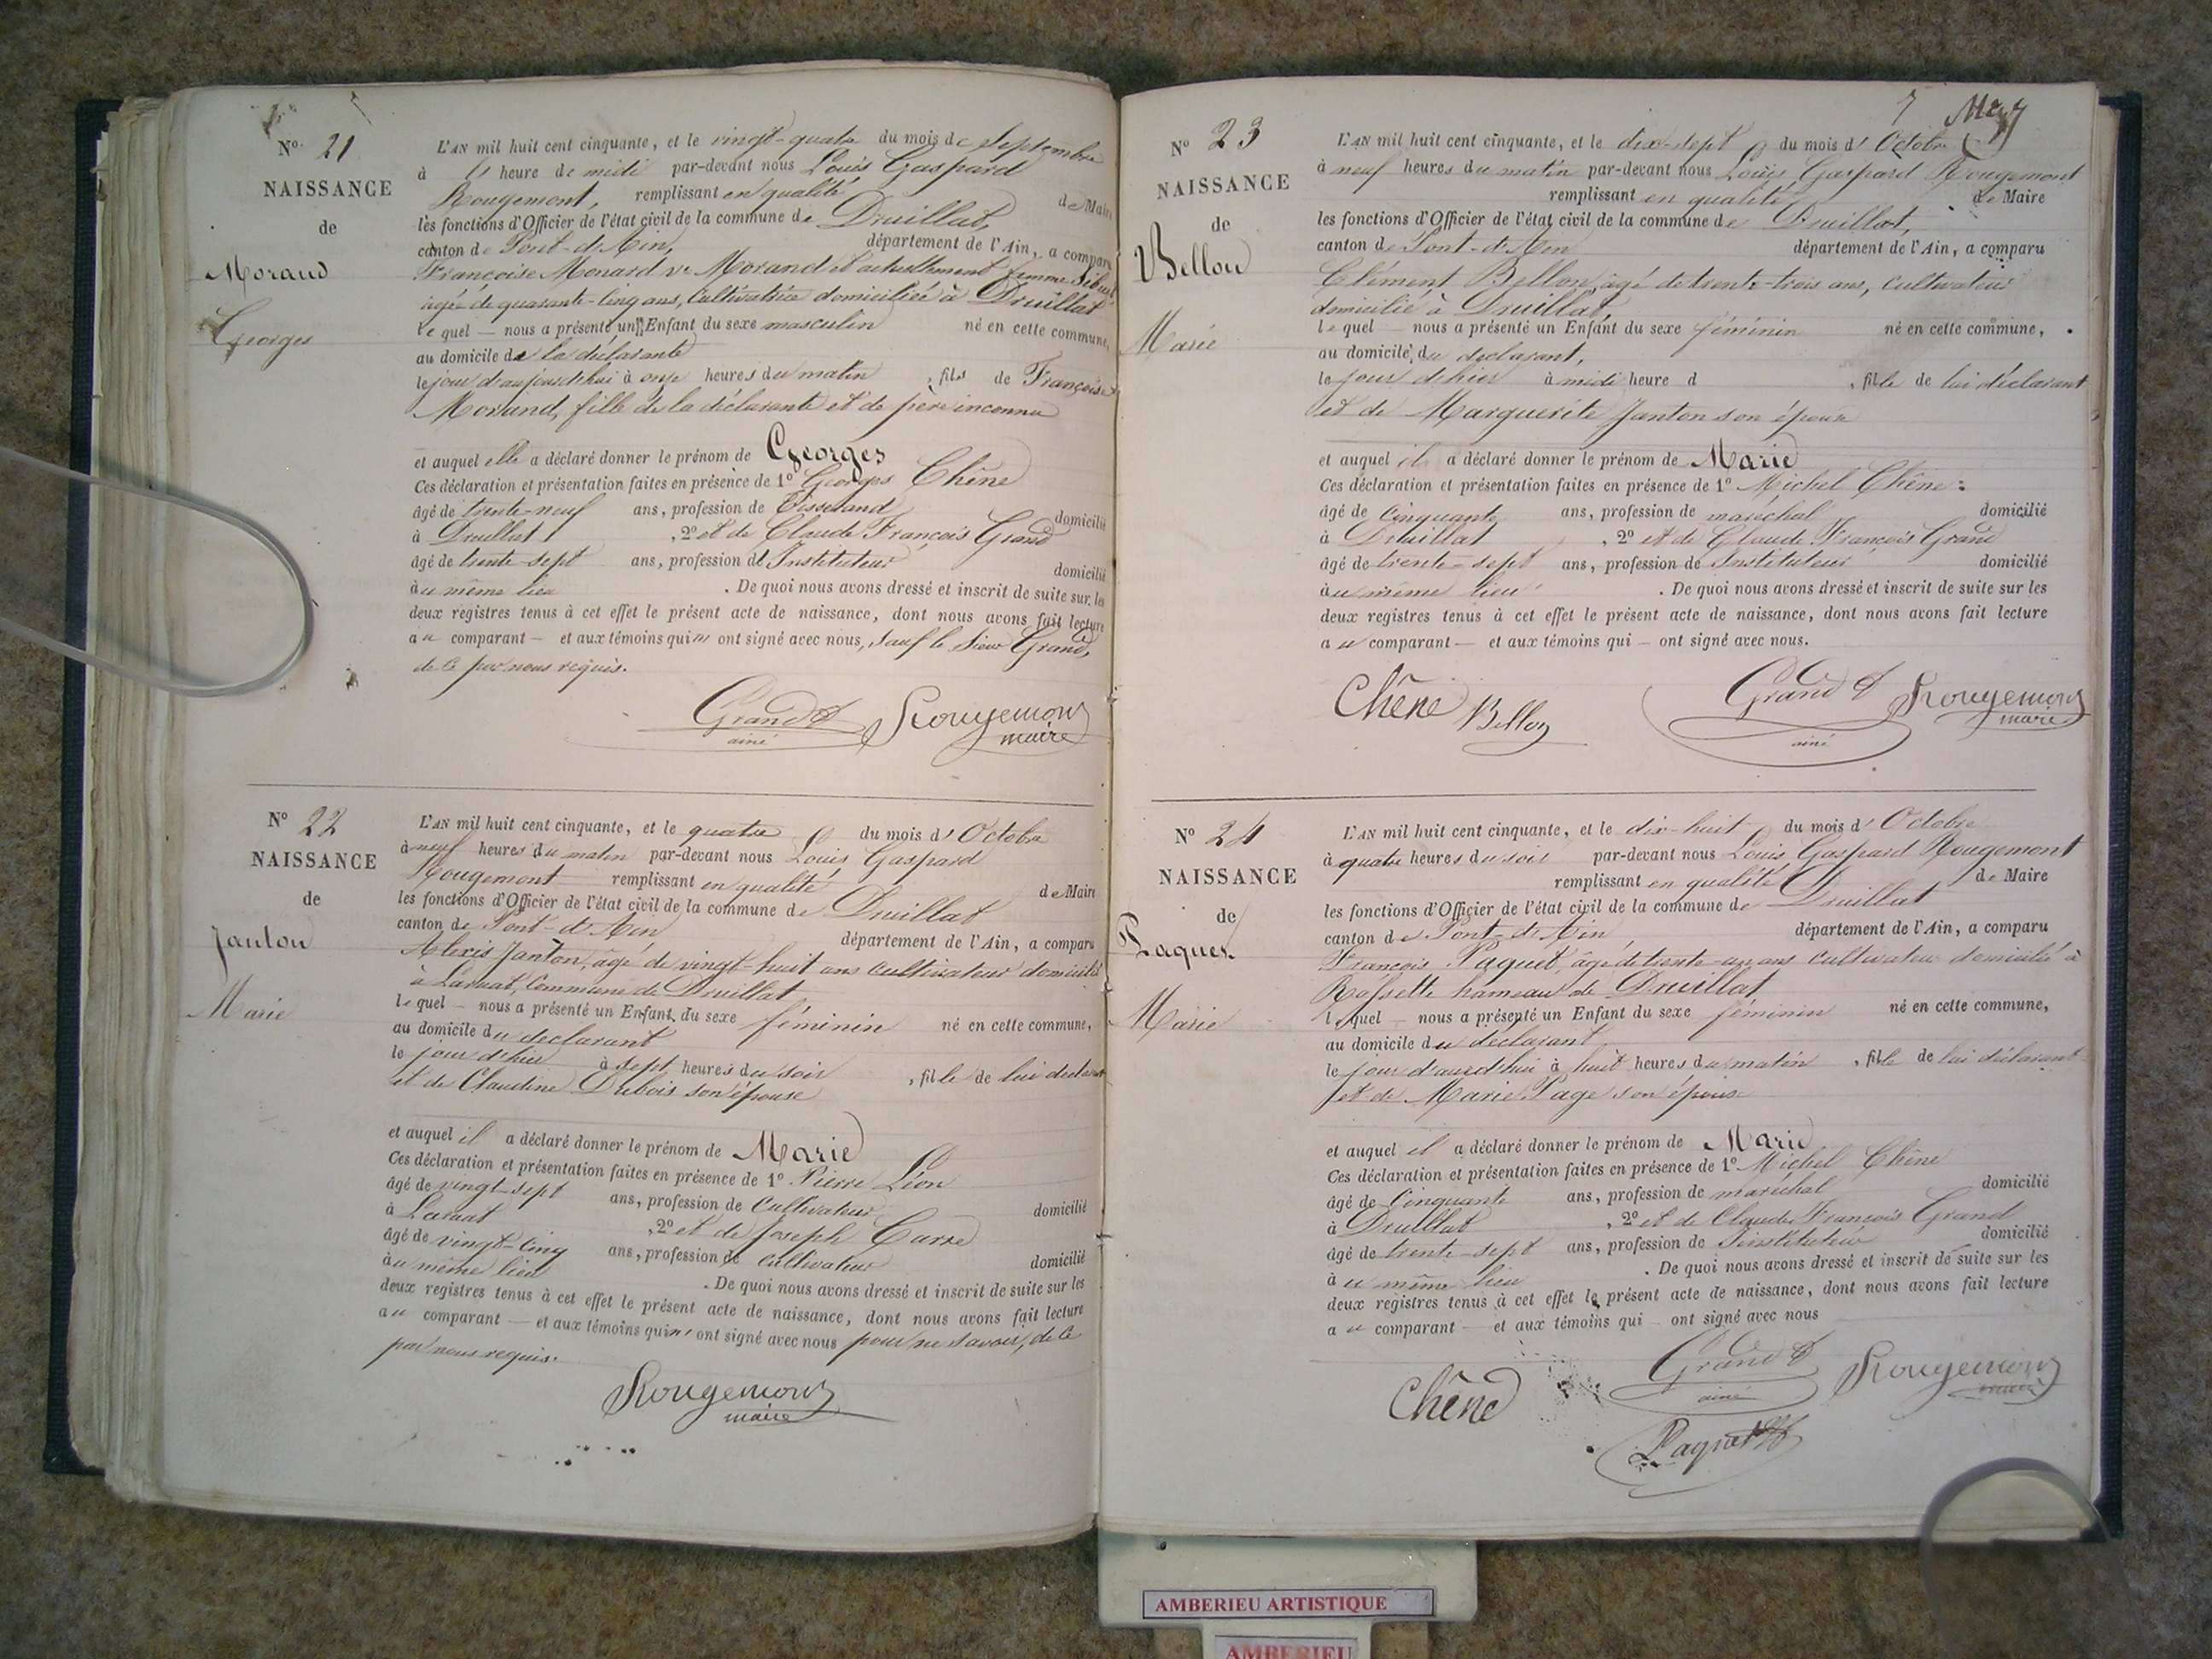 N° 21
NAISSANCE
de
Morand
Georges
L'AN mil huit cent cinquante, et le vingt-quatre du mois de septembre
à heure de midi par-devant nous Louis Gaspard
Rougemont, remplissant en qualité de Maire
les fonctions d'Officier de l'état civil de la commune de Druillat,
canton de Pont-d'Ain, département de l'Ain, a comparu
Françoise Monard ve Morand et actuellement femme
agée de quarante-cinq ans, Cultivatrice domiciliée à Druillat
le quel — nous a présenté un Enfant du sexe masculin né en cette commune,
au domicile de la déclarante
le jour d'aujourdhui à onze heures du matin , fils de Françoise
Morand, fille de la déclarante et de père inconnu
et auquel elle a déclaré donner le prénom de Georges
Ces déclaration et présentation faites en présence de 1° Georges Chêne
âgé de trente-neuf ans, profession de Tisserand domicilié
à Druillat , 2° et de Claude François Grand
âgé de trente-sept ans, profession d'Instituteur domicilié
au même lieu . De quoi nous avons dressé et inscrit de suite sur les
deux registres tenus à cet effet le présent acte de naissance, dont nous avons fait lecture
au comparant — et aux témoins qui n' ont signé avec nous, sauf le Sieur Grand,
de ce par nous requis.
Grand aîné Rougemont maire
N° 22
NAISSANCE
de
Janton
Marie
L'AN mil huit cent cinquante, et le quatre du mois d'Octobre
à neuf heures du matin par-devant nous Louis Gaspard
Rougemont remplissant en qualité de Maire
les fonctions d'Officier de l'état civil de la commune de Druillat
canton de Pont-d'Ain département de l'Ain, a comparu
Alexis Janton, agé de vingt-huit ans cultivateur domicilié
à Commune de Druillat
le quel — nous a présenté un Enfant du sexe féminin né en cette commune,
au domicile du déclarant
le jour d'hier à sept heures du soir , fille de lui déclarant
et de Claudine Dubois son épouse
et auquel il a déclaré donner le prénom de Marie
Ces déclaration et présentation faites en présence de 1° Pierre Léon
âgé de vingt-sept ans, profession de Cultivateur domicilié
à , 2° et de Joseph
âgé de vingt-cinq ans, profession de cultivateur domicilié
au même lieu . De quoi nous avons dressé et inscrit de suite sur les
deux registres tenus à cet effet le présent acte de naissance, dont nous avons fait lecture
au comparant — et aux témoins qui n' ont signé avec nous pour ne savoir, de ce
par nous requis.
Rougemont maire
7
N° 23
NAISSANCE
de
Bellon
Marie
L'AN mil huit cent cinquante, et le dix-sept du mois d'Octobre
à neuf heures du matin par-devant nous Louis Gaspard Rougemont
remplissant en qualité de Maire
les fonctions d'Officier de l'état civil de la commune de Druillat,
canton de Pont-d'Ain département de l'Ain, a comparu
Clément Bellon, agé de trente-trois ans, cultivateur
domicilié à Druillat,
le quel — nous a présenté un Enfant du sexe féminin né en cette commune,
au domicile du déclarant,
le jour d'hier à midi heure d , fille de lui déclarant
et de Marguerite Janton son épouse
et auquel il a déclaré donner le prénom de Marie
Ces déclaration et présentation faites en présence de 1° Michel Chêne
âgé de Cinquante ans, profession de maréchal domicilié
à Druillat , 2° et de Claude François Grand
âgé de trente-sept ans, profession de Instituteur domicilié
au même lieu . De quoi nous avons dressé et inscrit de suite sur les
deux registres tenus à cet effet le présent acte de naissance, dont nous avons fait lecture
au comparant — et aux témoins qui — ont signé avec nous.
Chêne Bellon Grand aîné Rougemont maire
N° 24
NAISSANCE
de
Paquet.
Marie
L'AN mil huit cent cinquante, et le dix-huit du mois d'Octobre
à quatre heures du soir par-devant nous Louis Gaspard Rougemont
remplissant en qualité de Maire
les fonctions d'Officier de l'état civil de la commune de Druillat
canton de Pont-d'Ain département de l'Ain, a comparu
François Paquet, âgé de trente-un ans cultivateur domicilié à
Rossette hameau de Druillat
lequel — nous a présenté un Enfant du sexe féminin né en cette commune,
au domicile du déclarant
le jour d'aujourd'hui à huit heures du matin , fille de lui déclarant
et de Marie Page son épouse
et auquel il a déclaré donner le prénom de Marie
Ces déclaration et présentation faites en présence de 1° Michel Chêne
âgé de Cinquante ans, profession de maréchal domicilié
à Druillat , 2° et de Claude François Grand
âgé de trente-sept ans, profession de Instituteur domicilié
au même lieu . De quoi nous avons dressé et inscrit de suite sur les
deux registres tenus à cet effet le présent acte de naissance, dont nous avons fait lecture
au comparant — et aux témoins qui — ont signé avec nous
Chêne Grand aîné Rougemont maire
Paquet
AMBERIEU ARTISTIQUE
AMBERIEU